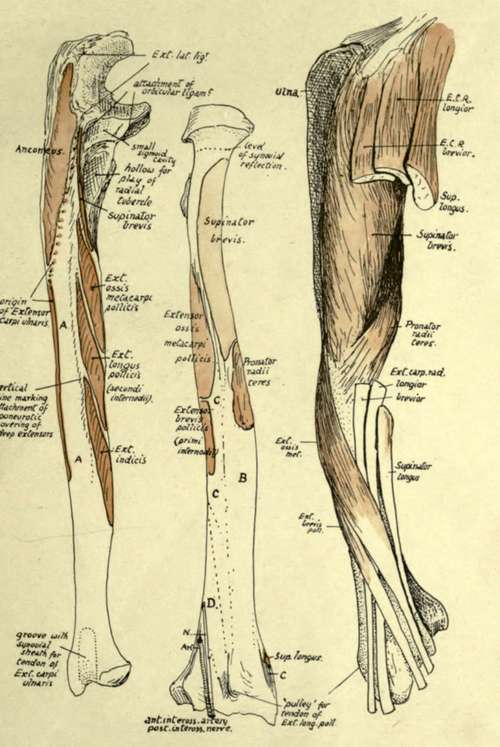 Ext. lat. ligt
attachment of
orbicular ligamt
Anconeus.
small
sigmoid
cavity
hollow for
play of
radial
tubercle
Supinator
brevis
origin
of Extensor
carpi ulnaris.
A
Ext.
ossis
metacarpi
pollicis
Ext.
longus
pollicis
(secundi
internodii).
ertical
ine marking
ttachment of
poneurotic
overing of
eep extensors
A
Ext.
indicis
groove with
synovial
sheath for
tendon of
Ext. carpi
ulnaris
level of
synovial
reflection.
Supinator
brevis.
Extensor
ossis
metacarpi
pollicis
Pronator
radii
teres
C
Extensor
brevis
pollicis
(primi
internodii)
B
C
D.
N
Ar
Sup. longus.
C
"pulley" for
tendon of
Ext. long. poll.
ant. inteross. artery
post. inteross. nerve.
Ulna.
E.C.R.
longior
E.C.R.
brevior.
Sup.
longus.
Supinator
brevis.
Pronator
radii
teres.
Ext. carp. rad.
longior
brevior
Ext.
ossis
met.
Supinator
longus
Ext.
brevis
poll.